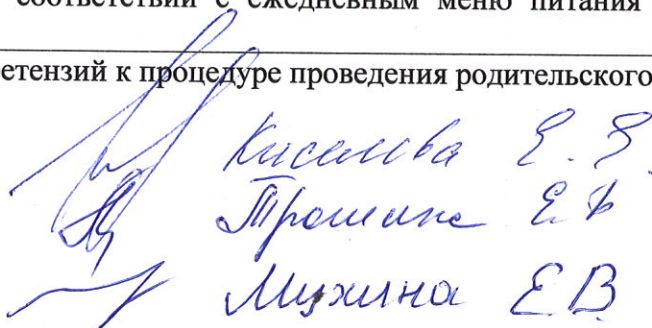 соответствии с ежедневным меню питания
етензий к процедуре проведения родительского
Киселева Е.
Трошина Е
Мухина Е В